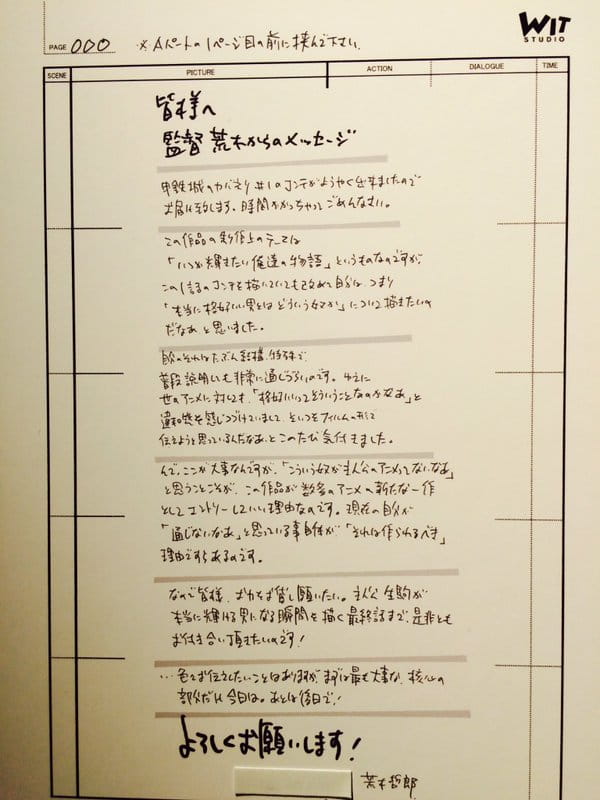 WIT
STUDIO
PAGE 000 ※Aパートの1ページ目の前に挟んで下さい.
SCENE PICTURE ACTION DIALOGUE TIME
皆様へ
監督 荒木からのメッセージ
甲鉄城のカバネリ #1のコンテがようやく出来ましたので
お届け致します。時間かかっちゃってごめんなさい。
この作品の制作上のテーマは
「いつか輝きたい俺達の物語」というものなのですが
この1話のコンテを描いていても改めて自分は、つまり
「本当に格好いい男とはどういう奴か」について描きたいの
だなあ と思いました。
自分のそれはたぶん結構 特殊で
普段説明しても非常に通じづらいのです。ゆえに
世のアニメに対しても、「格好いいってそういうことなのかなあ」と
違和感を感じつづけていまして、そいつをフィルムの形で
伝えようと思っているんだなあ、とこのたび気付きました。
んで、ここが大事なんですが、「こういう奴が主人公のアニメってないなあ」
と思うところが、この作品が数多のアニメの新たな一作
としてエントリーしていい理由なのです。現在の自分が
「通じないなあ」と思っている事自体が「それは作られるべき」
理由ですらあるのです。
なので皆様、お力をお貸し願いたい。主人公 生駒が
本当に輝ける男になる瞬間を描く最終話まで、是非とも
お付き合い頂きたいのです!
…色々お伝えしたいことはありますが、まずは最も大事な、核心の
部分だけ今日は。あとは後日で!
よろしくお願いします!
荒木哲郎